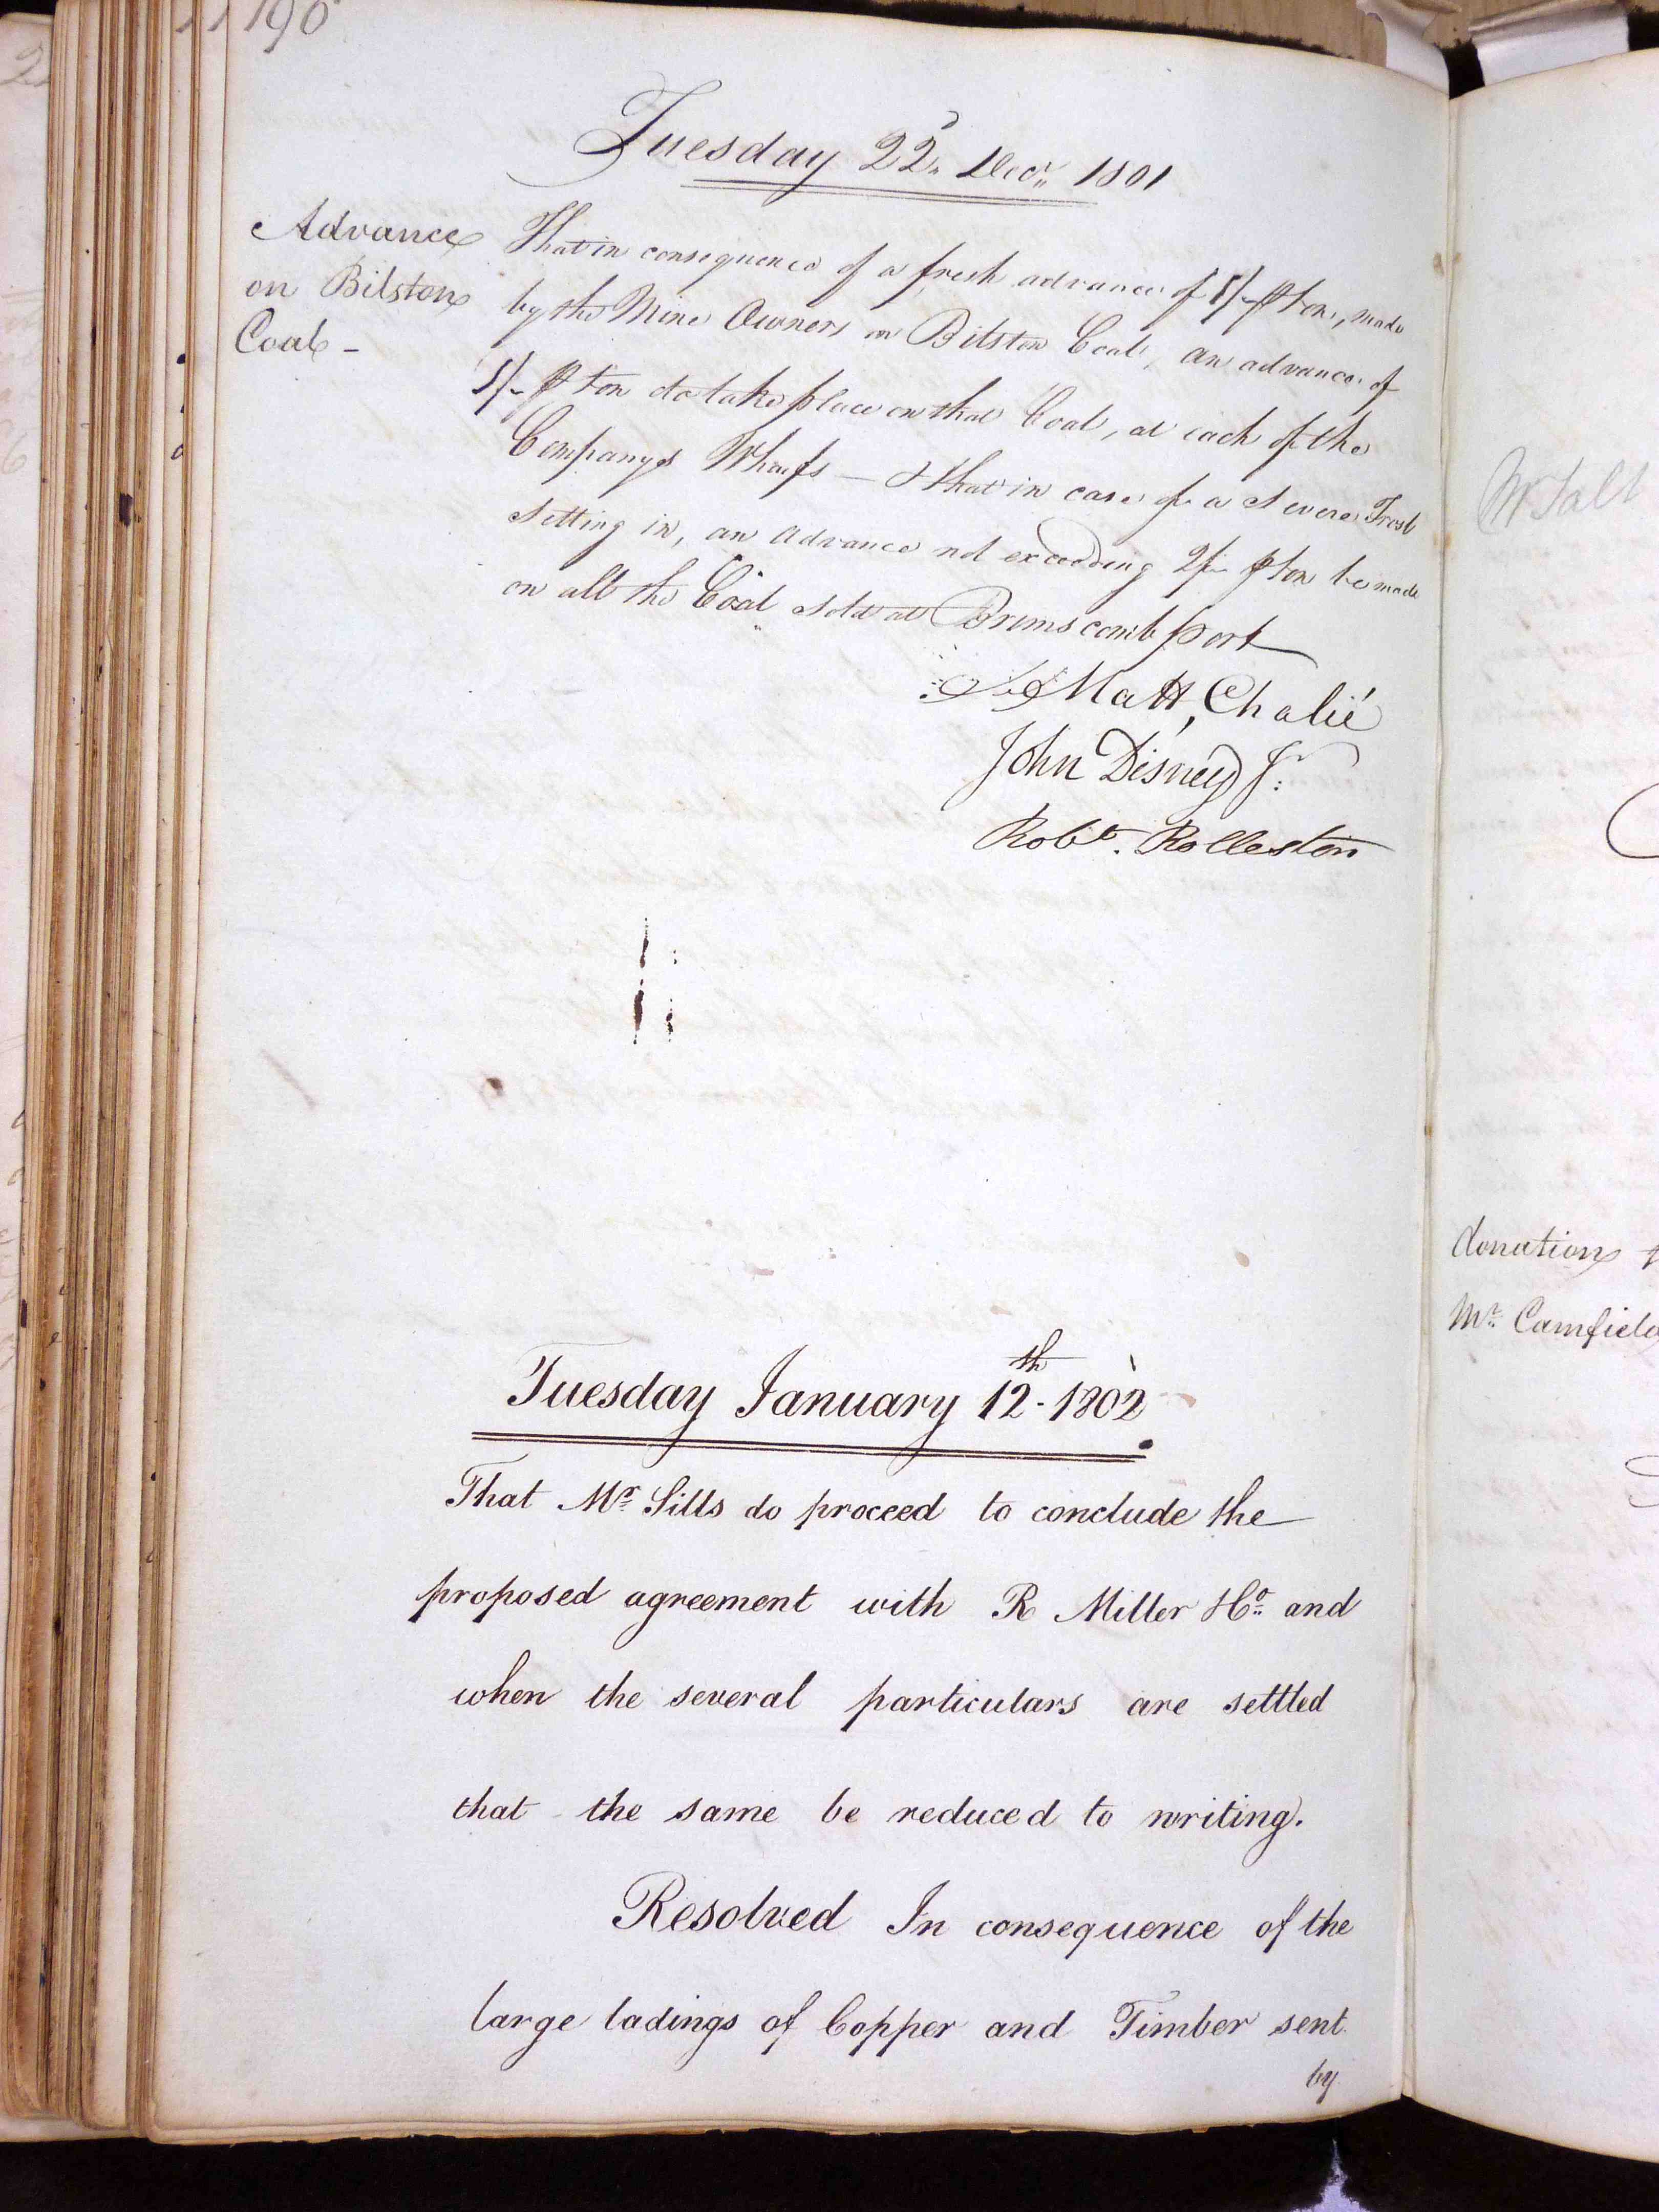 190
Tuesday 22d. Decr. 1801
Advance
on Bilston
Coal -
That in consequence of a fresh advance of 1/- ⅌ ton, made
by the Mine Owners on Bilston Coal, an advance of
1/- ⅌ ton do take place on that Coal, at each of the
Companys Wharfs — & that in case of a severe Frost
setting in, an Advance not exceeding 2/- ⅌ ton be made
on all the Coal sold at Brimscomb port
Matt, Chalié
John Disney Jr:
Robt. Rolleston
Tuesday January 12th. 1802
That Mr. Sills do proceed to conclude the
proposed agreement with R Miller & Co. and
when the several particulars are settled
that the same be reduced to writing.
Resolved In consequence of the
large ladings of Copper and Timber sent
by
donation
Mr. Camfield